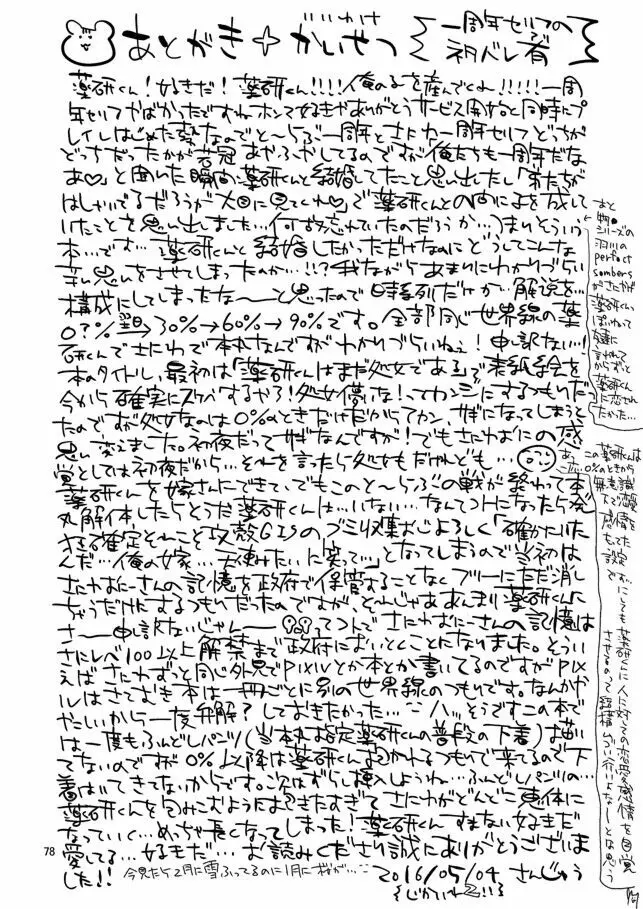 あとがき+かいせつ
一周年セリフの
ネタバレ有
薬研くん!好きだ!薬研くん!!!!人俺の子を産んでくれ!!!!!一周
年セリフやばかったですねホンマ好きやありがとうサービス開始と同時にプ
レイしはじめた気なのでと〜らぶ一周年とさにわ一周年セリフどっちが
どっちだったかが若冠あやふやしてるのですが「俺たちも一周年だな
あ♡」と聞いた瞬間薬研くんと結婚してたこと思い出たし「弟たちが
はしゃいでるだろうが大目に見てくれ♡」で薬研くんとの間に子を成して
いたことを思い出しました…(何故忘れていたのだろうか…)まぁそういう
本…です…薬研くんと結婚したかっただけなのにどうしてこんな
辛い思いをさせてしまったのか…!!?我ながらあまりにわかりづらい
構成にしてしまったな〜〜と思ったので時系列だけか…解説を…
0?%→30%→60%→90%です。全部同じ世界線の薬
研くんでさにわで本丸なんですがわかりづらいねぇ!申し訳ない!
本のタイトル、最初は「薬研くんはまだ処女である」で表紙絵を
今から確実にスケベするやろ!処女儚いな!ってカンジにするつもりだっ
たのですが処女なのは0%のときだけだから
思い変えました。初夜だってサギなんですが!でもさにわおにの感
覚としては初夜だから…それを言ったら処女もだけれども…
薬研くんを嫁さんにできて、でもこのと〜らぶの戦が終わって本
丸解体したらとうた薬研くんは…いない…なんてコトになったら発
狂する確定それこそ攻殻GISのゴミ収集おじよろしく「確かにいた
んだ…俺の嫁…天使みたいに笑って…」となってしまうので当初は
さにわおにーさんの記憶を政府で保管することなくフツーにただ消し
ちゃうだけにするつもりだったのですが、それじゃああんまり薬研くんに
さ――申し訳ないじゃん――ってコトでさにわおにーさんの記憶は
さにレベ100以上解禁まで政府においとくことになりました。そうい
えばさにわずっと同じ外見でpixivとか本とか書いてるのですがpix
ルはさておき本は一冊ごとに別の世界線のつもりです。なんかや
やこしいから一度弁解?しておきたかった… ハッそうですこの本で
は一度もふんどしパンツ(当本丸指定薬研くんの普段の下着)描い
てないのですが0%以降は薬研くん抱かれるつもりで来てるので下
着はいてきてないからです。次はずらし挿入しようね…ふんどしパンツの…
薬研くんを包みこむように抱きたすぎてさにわがどんどこ恵体に
なっていく…めっちゃ長くなってしまった!薬研くんすまない好きだ
愛してる…好きだ…お読みくださり誠にありがとうございま
した!!
今見たら2月に雪ふってるのに1月に桜が…
2016/05/04 さんじゅう
じかいわ
あと
物●
シリーズの
羽川の
perfect
sombers
がさにわが
薬研くんっ
ぽいねって
言われて
からずっと
薬研くん
に恋され
たかった…
あ、この薬研くんは
0%のときから
無意識
なで恋
感情を
もってた
設定
です。にしても薬研くんに人に対しての恋愛感情を自覚
させるのって
よなーと思う
78